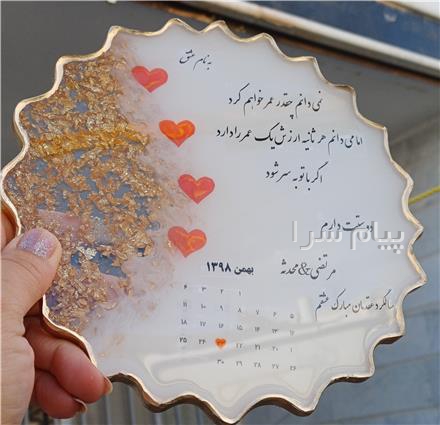 به نام عشق
نمی دانم چقدر عمر خواهم کرد
اما می دانم هر ثانیه ارزش یک عمر را دارد
اگر با تو به سر شود
دوستت دارم
پیام سرا
مرتضی & محدثه
بهمن ۱۳۹۸
سالگرد عقدمان مبارک عشقم
۱ ۲ ۳ ۴
۵ ۶ ۷ ۸ ۹ ۱۰ ۱۱
۱۲ ۱۳ ۱۴ ۱۵ ۱۶ ۱۷ ۱۸
۲۲ ۲۴ ۲۵
۲۶ ۲۷ ۲۸ ۲۹ ۳۰